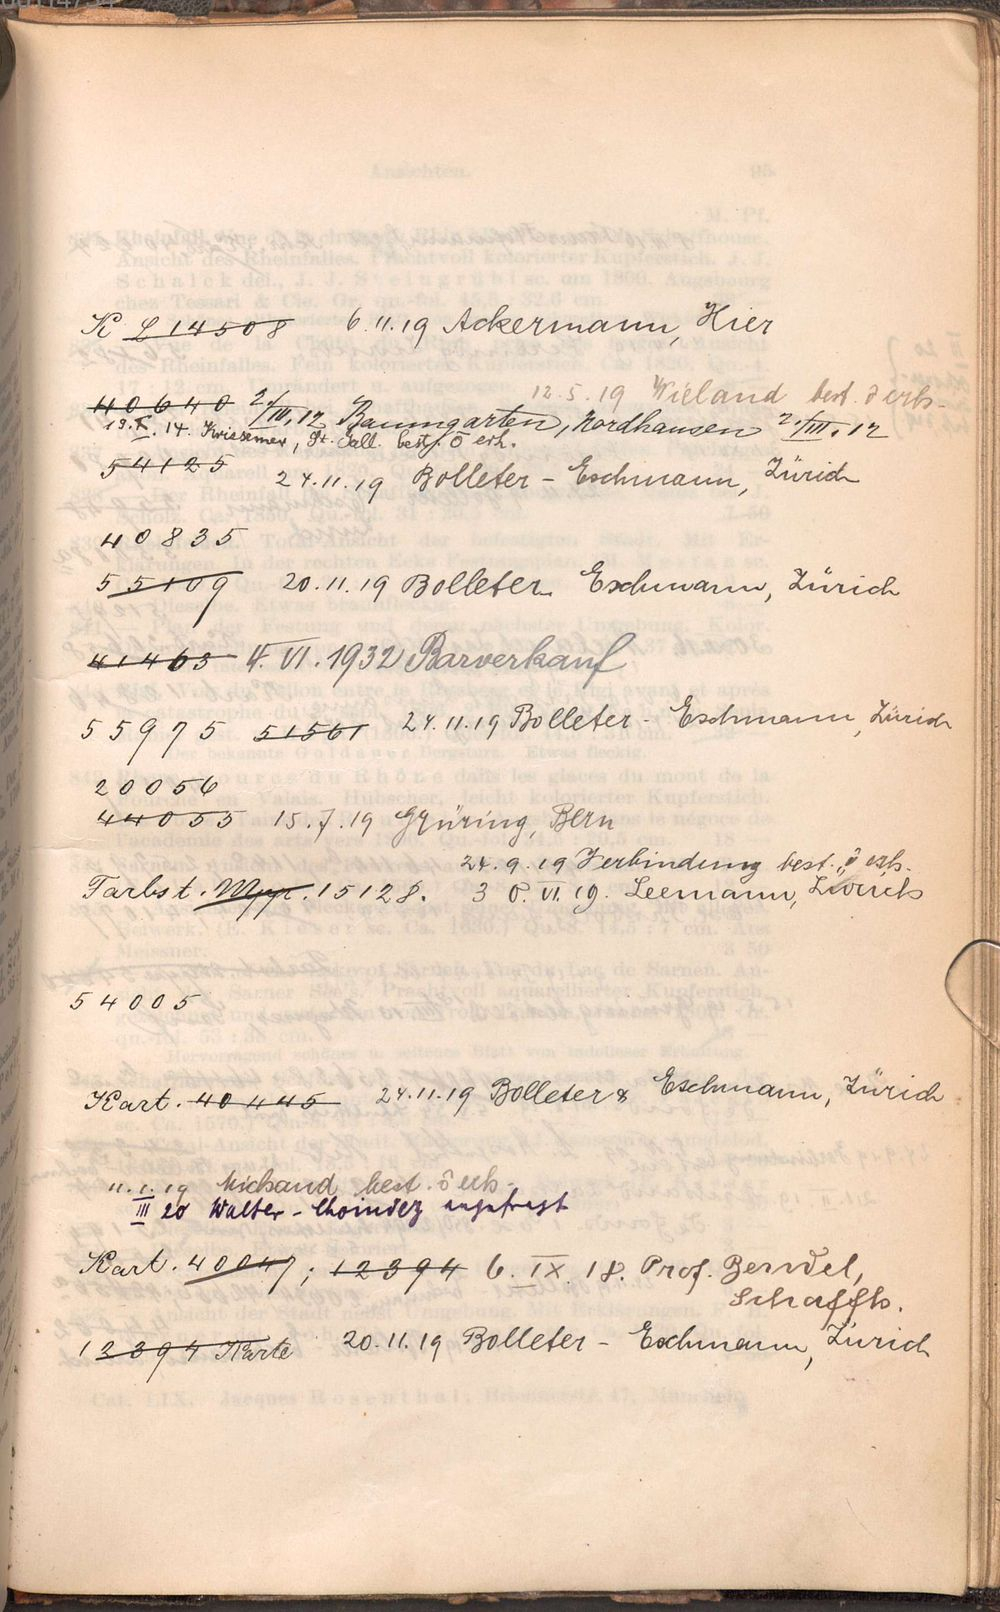 K L 14508 6.11.19 Ackermann, Hier
12.5.19 Wieland best. ö erh.
40640 2/IV.12 Baumgarten, Nordhausen 2./III.12
19.X.14. Kriesemer, St. Gall. best. ö erh.
54125 24.11.19 Bolleter - Eschmann, Zürich
40835
55109 20.11.19 Bolleter. Eschmann, Zürich
41463 4.VI.1932 Barverkauf
55975 51561 24.11.19 Bolleter - Eschmann, Zürich
20056
44055 15.7.19 Grüring, Bern
24.9.19 Verbindung best. ö erh.
Farbst. Mpp. 15128. 30.VI.19. Leemann, Zürich
54005
Kart. 40445 24.11.19 Bolleter & Eschmann, Zürich
11.I.19 best. ö erh.
III 20 Walter - Choindez angefragt
Kart. 40047; 12394 6.IX.18. Prof. Bendel,
Schaffh.
12394 Karte 20.11.19 Bolleter - Eschmann, Zürich